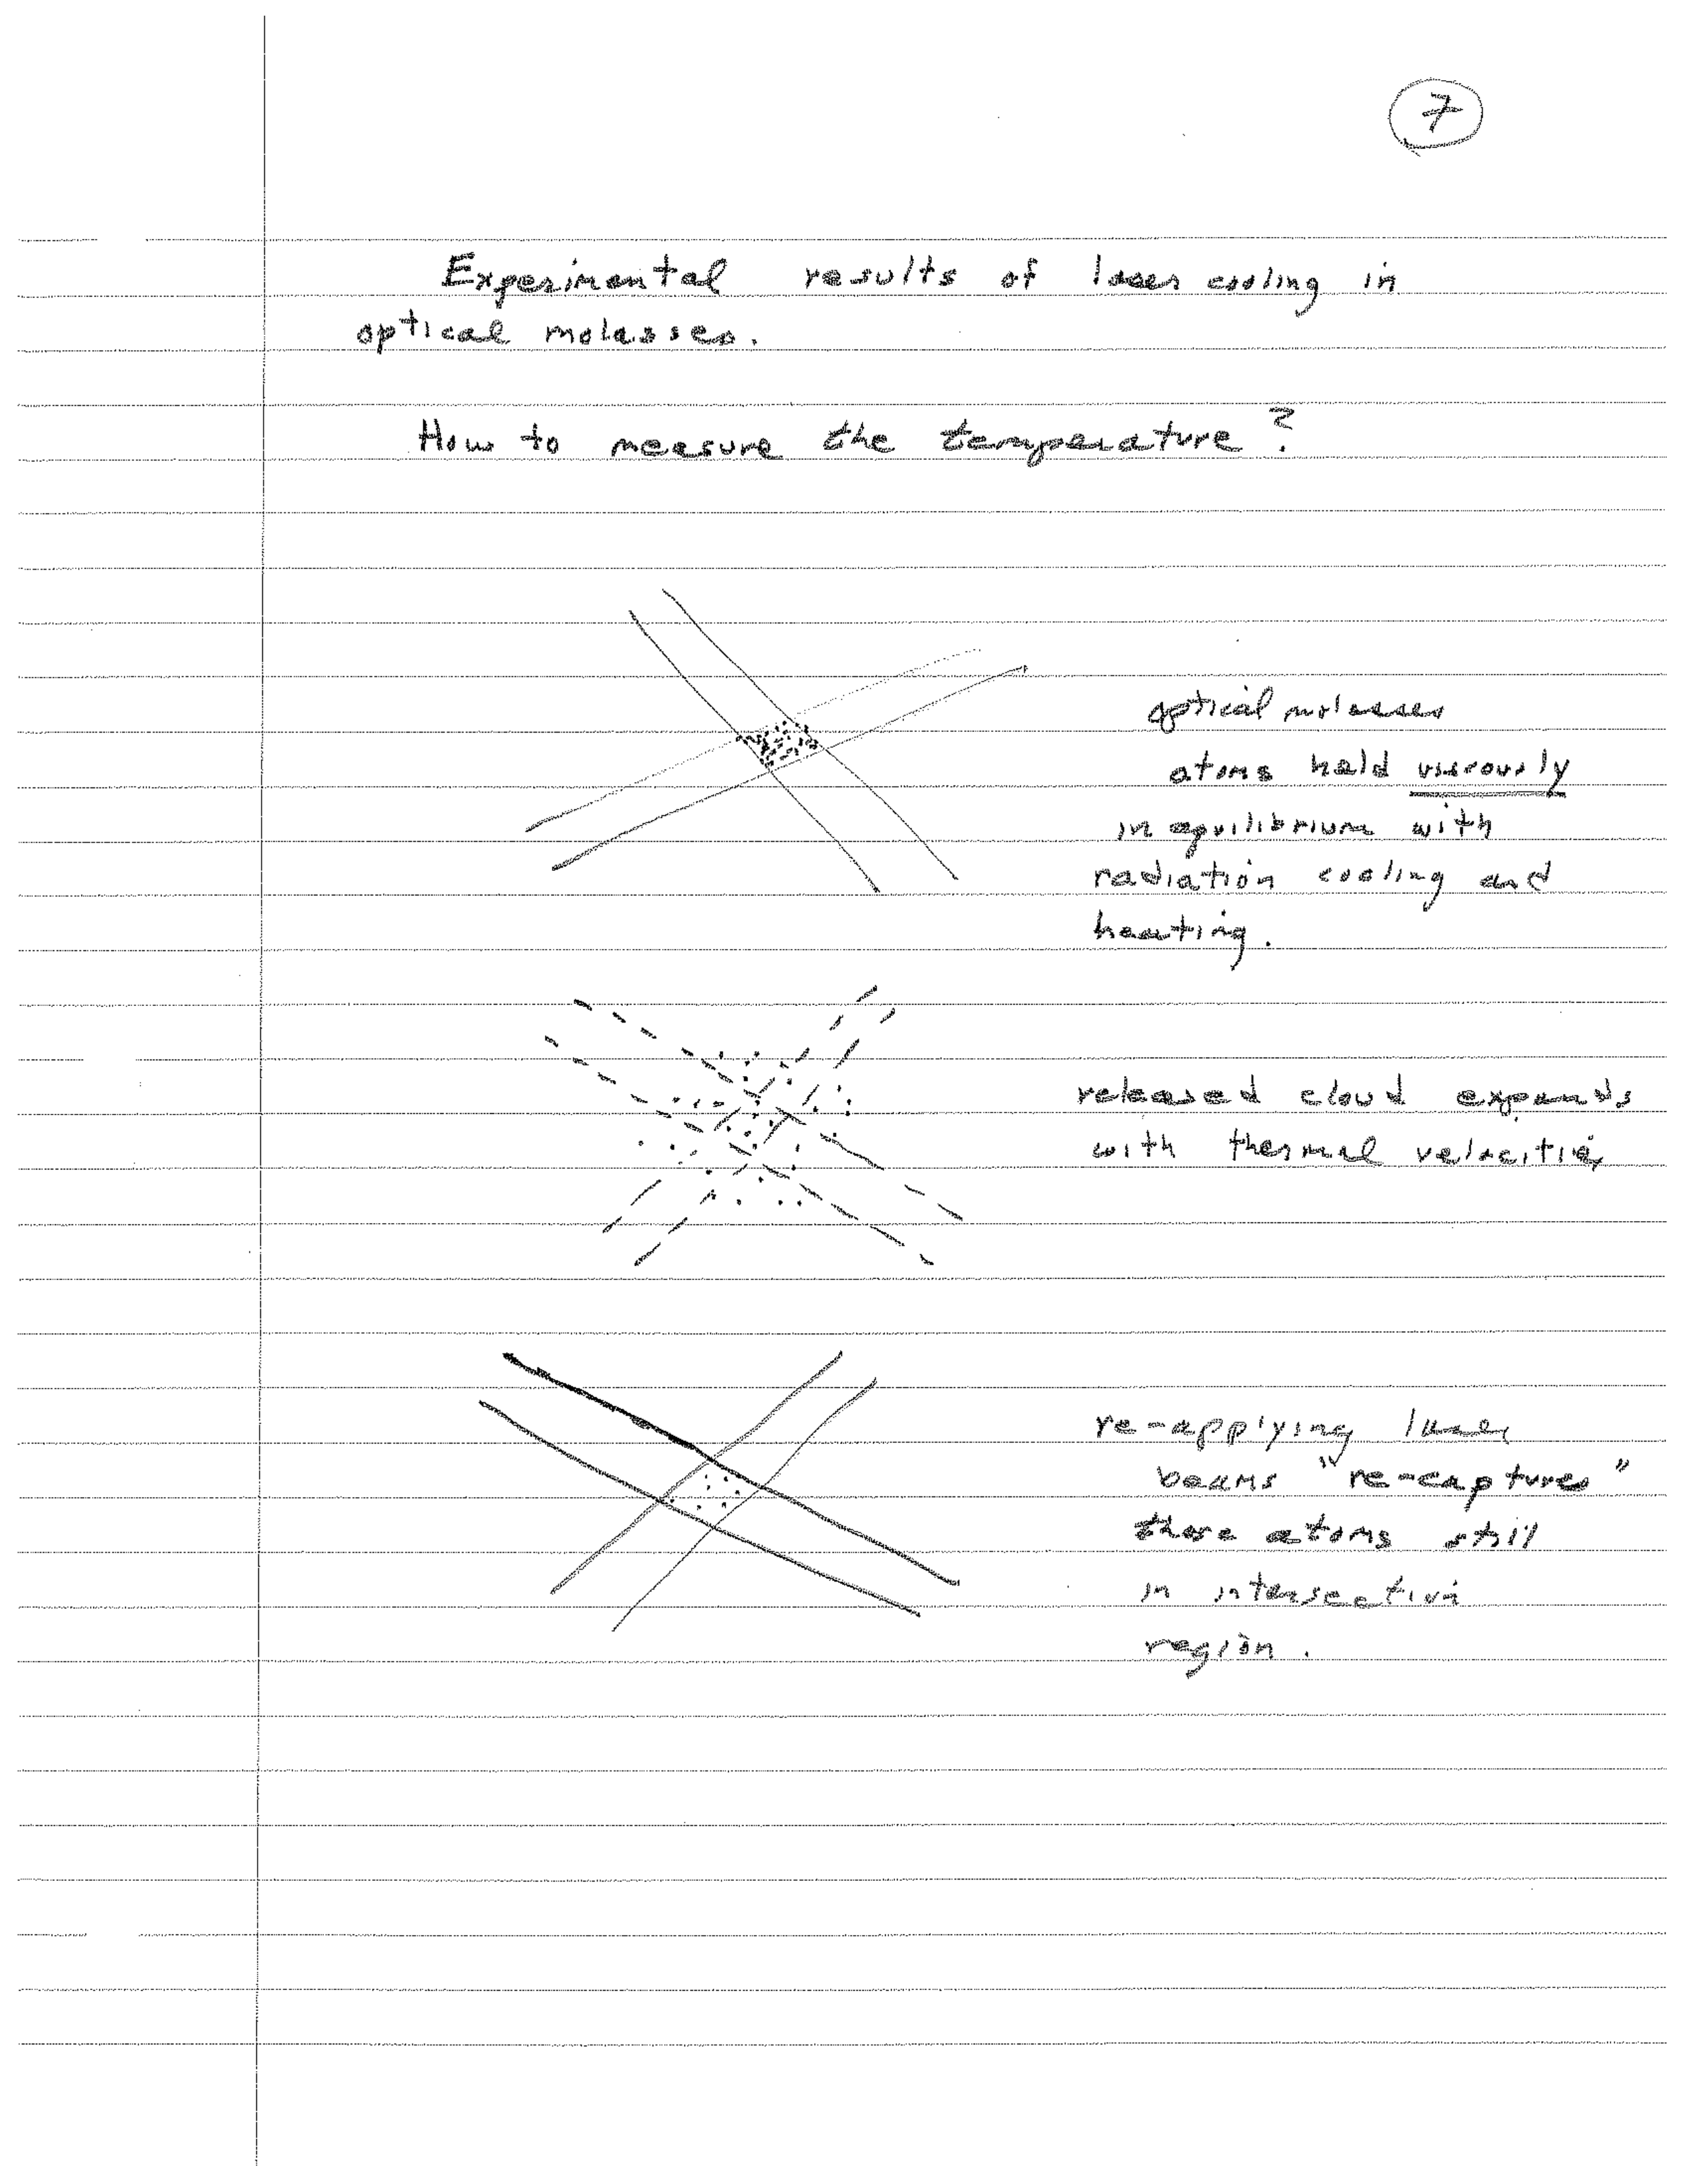 7
Experimental results of laser cooling in
optical molasses.
How to measure the temperature?
optical molasses
atoms held viscously
in equilibrium with
radiation cooling and
heating.
released cloud expands
with thermal velocities
re-applying laser
beams "re-captures"
those atoms still
in intersection
region.